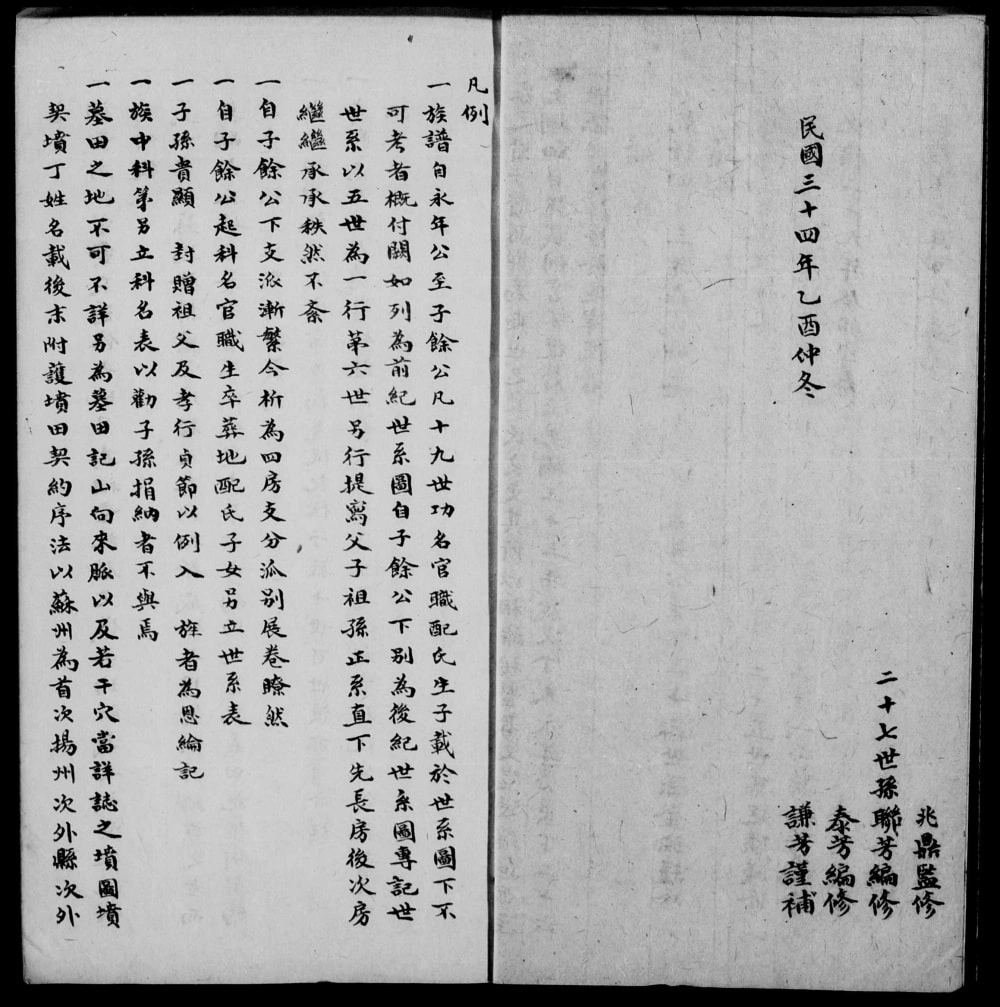 民國三十四年乙酉仲冬
兆鼎監修
二十七世孫聯芳編修
泰芳編修
謙芳謹補
凡例
一族譜自永年公至子餘公凡十九世功名官職配氏生子載於世系圖下不
可考者概付闕如列為前紀世系圖自子餘公下別為後紀世系圖專記世
世系以五世為一行第六世另行提寫父子祖孫正系直下先長房後次房
繼繼承承秩然不紊
一自子餘公下支派漸繁今析為四房支分派別展卷瞭然
一自子餘公起科名官職生卒葬地配氏子女另立世系表
一子孫貴顯 封贈祖父及孝行貞節以例入 旌者為恩綸記
一族中科第另立科名表以勸子孫捐納者不與焉
一墓田之地不可不詳另為墓田記山向來脈以及若干穴當詳誌之墳圖墳
契墳丁姓名載後末附護墳田契約序法以蘇州為首次揚州次外縣次外